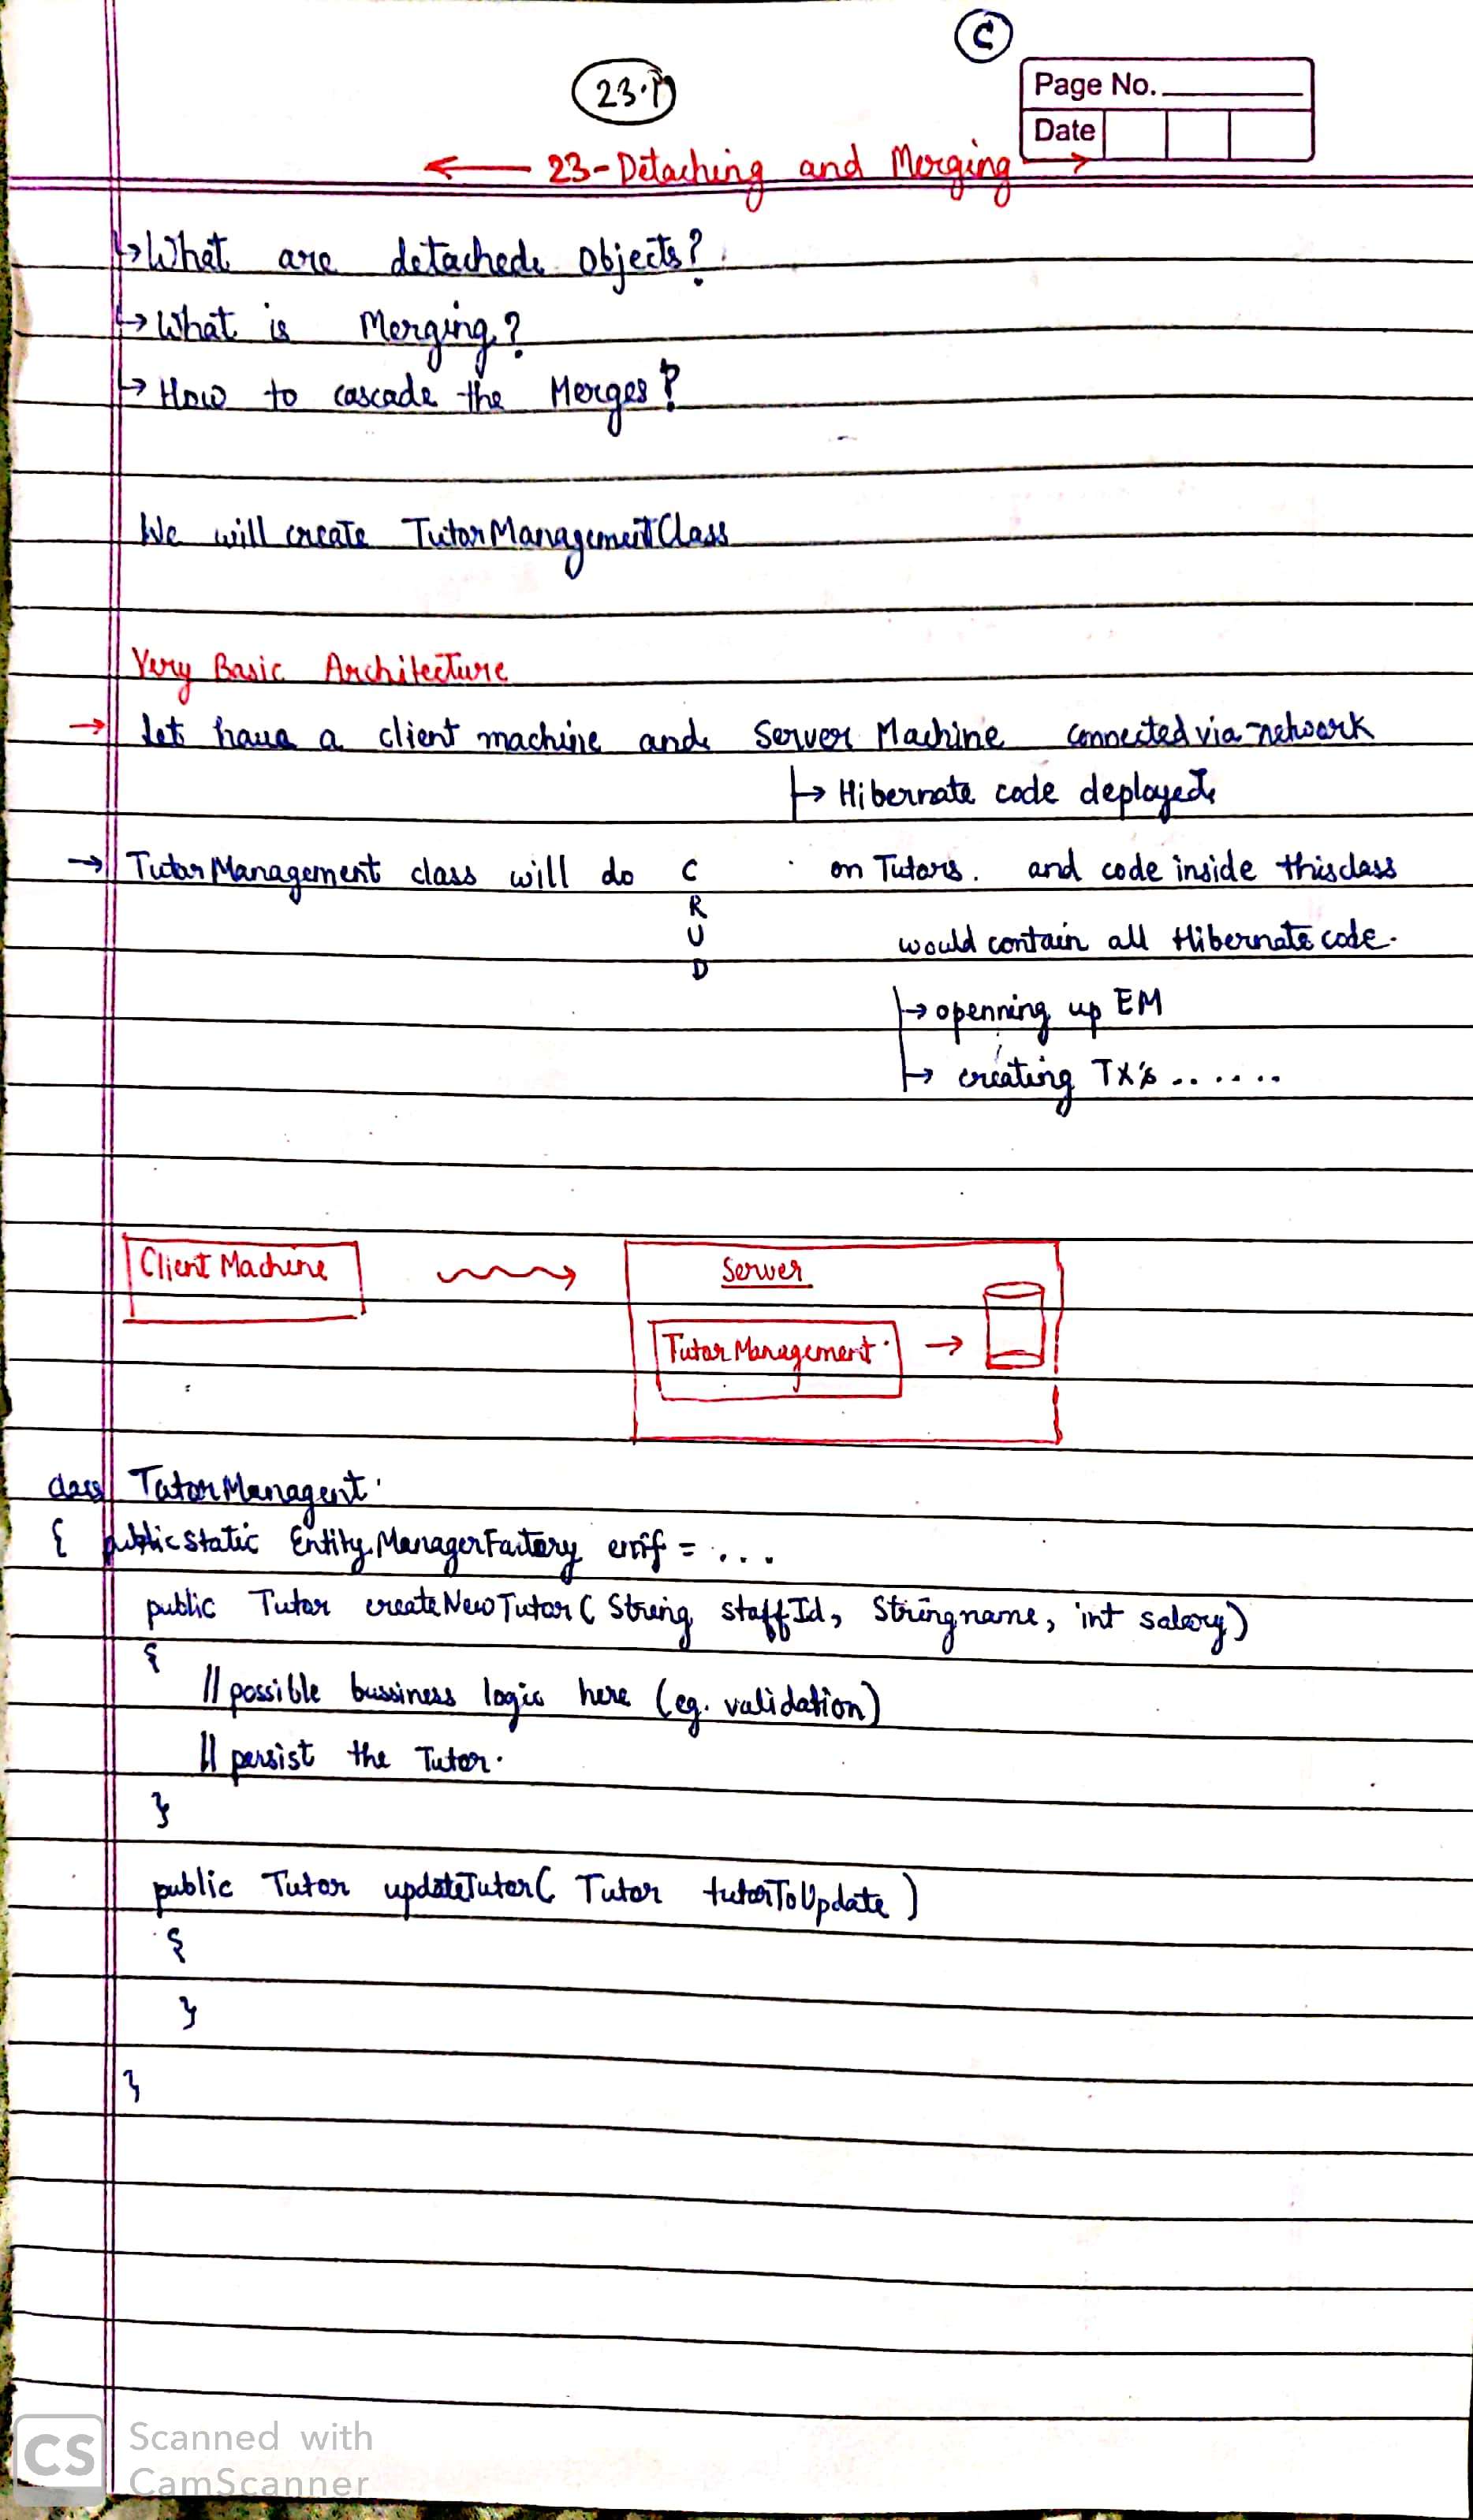 C
23.1
Page No.
Date
← 23-Detaching and Merging →
↳ What are detached objects?
↳ What is Merging?
↳ How to cascade the Merges?
We will create TutorManagementClass
Very Basic Architecture
→ let have a client machine and Server Machine connected via network
↳ Hibernate code deployed
→ TutorManagement class will do C on Tutors. and code inside this class
R
U would contain all Hibernate code.
D
↳ openning up EM
↳ creating TX's ......
Client Machine
Server
TutorManagement →
class TutorManagent
{ public static EntityManagerFactory emf = ...
public Tutor createNewTutor ( String staffId, String name, int salary)
{
// possible bussiness logic here (eg. validation)
// persist the Tutor.
}
public Tutor updateTutor( Tutor tutorToUpdate )
{
}
}
CS Scanned with
CamScanner